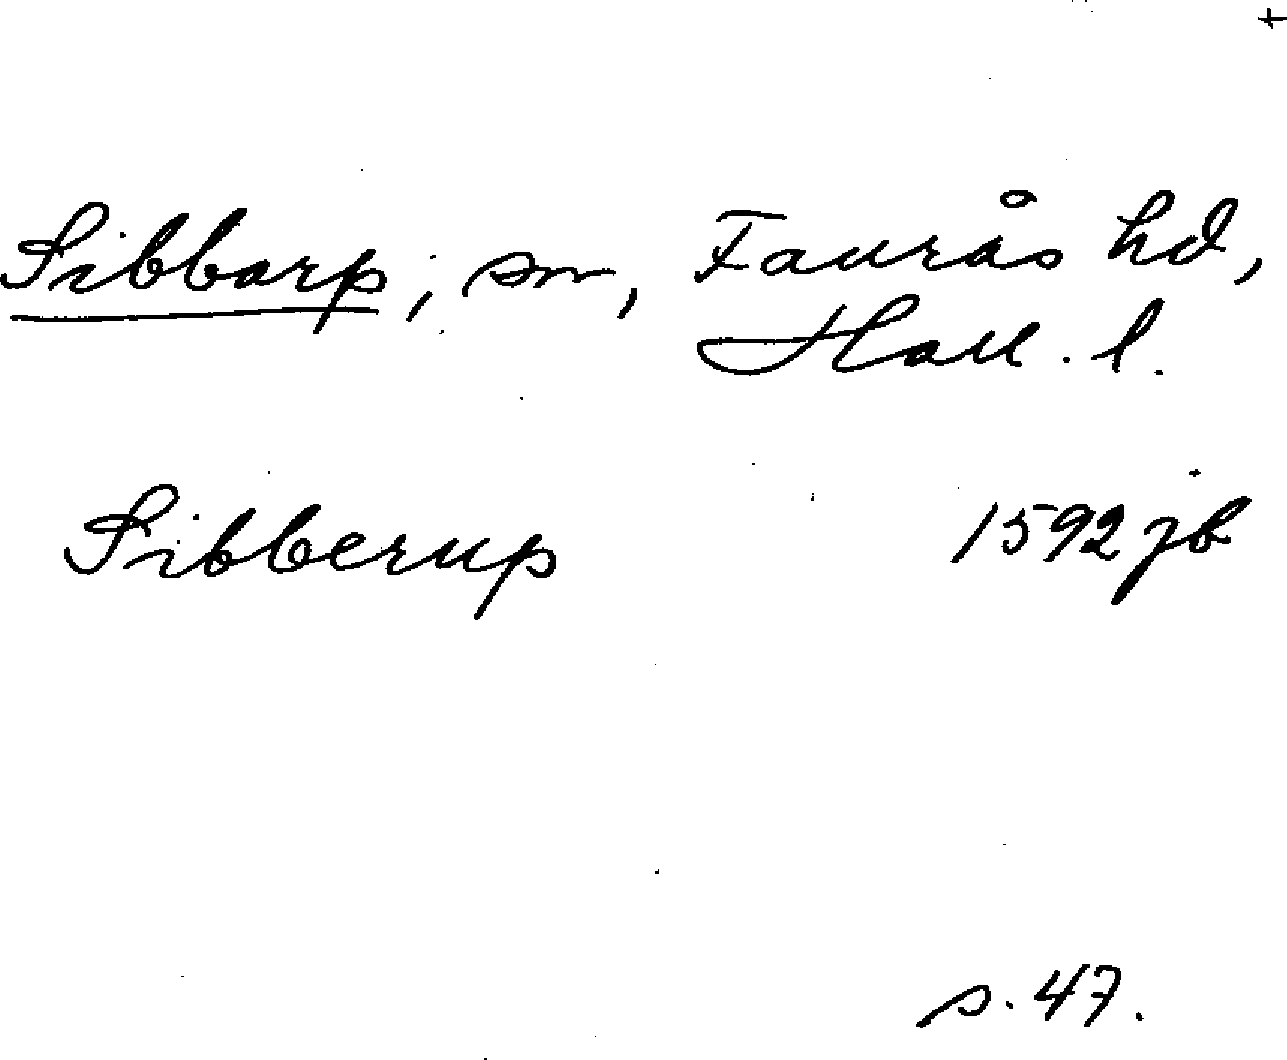 +
Sibbarp, sn, Faurås hd,
Hall. l.
Sibberup 1592 jb
s. 47.